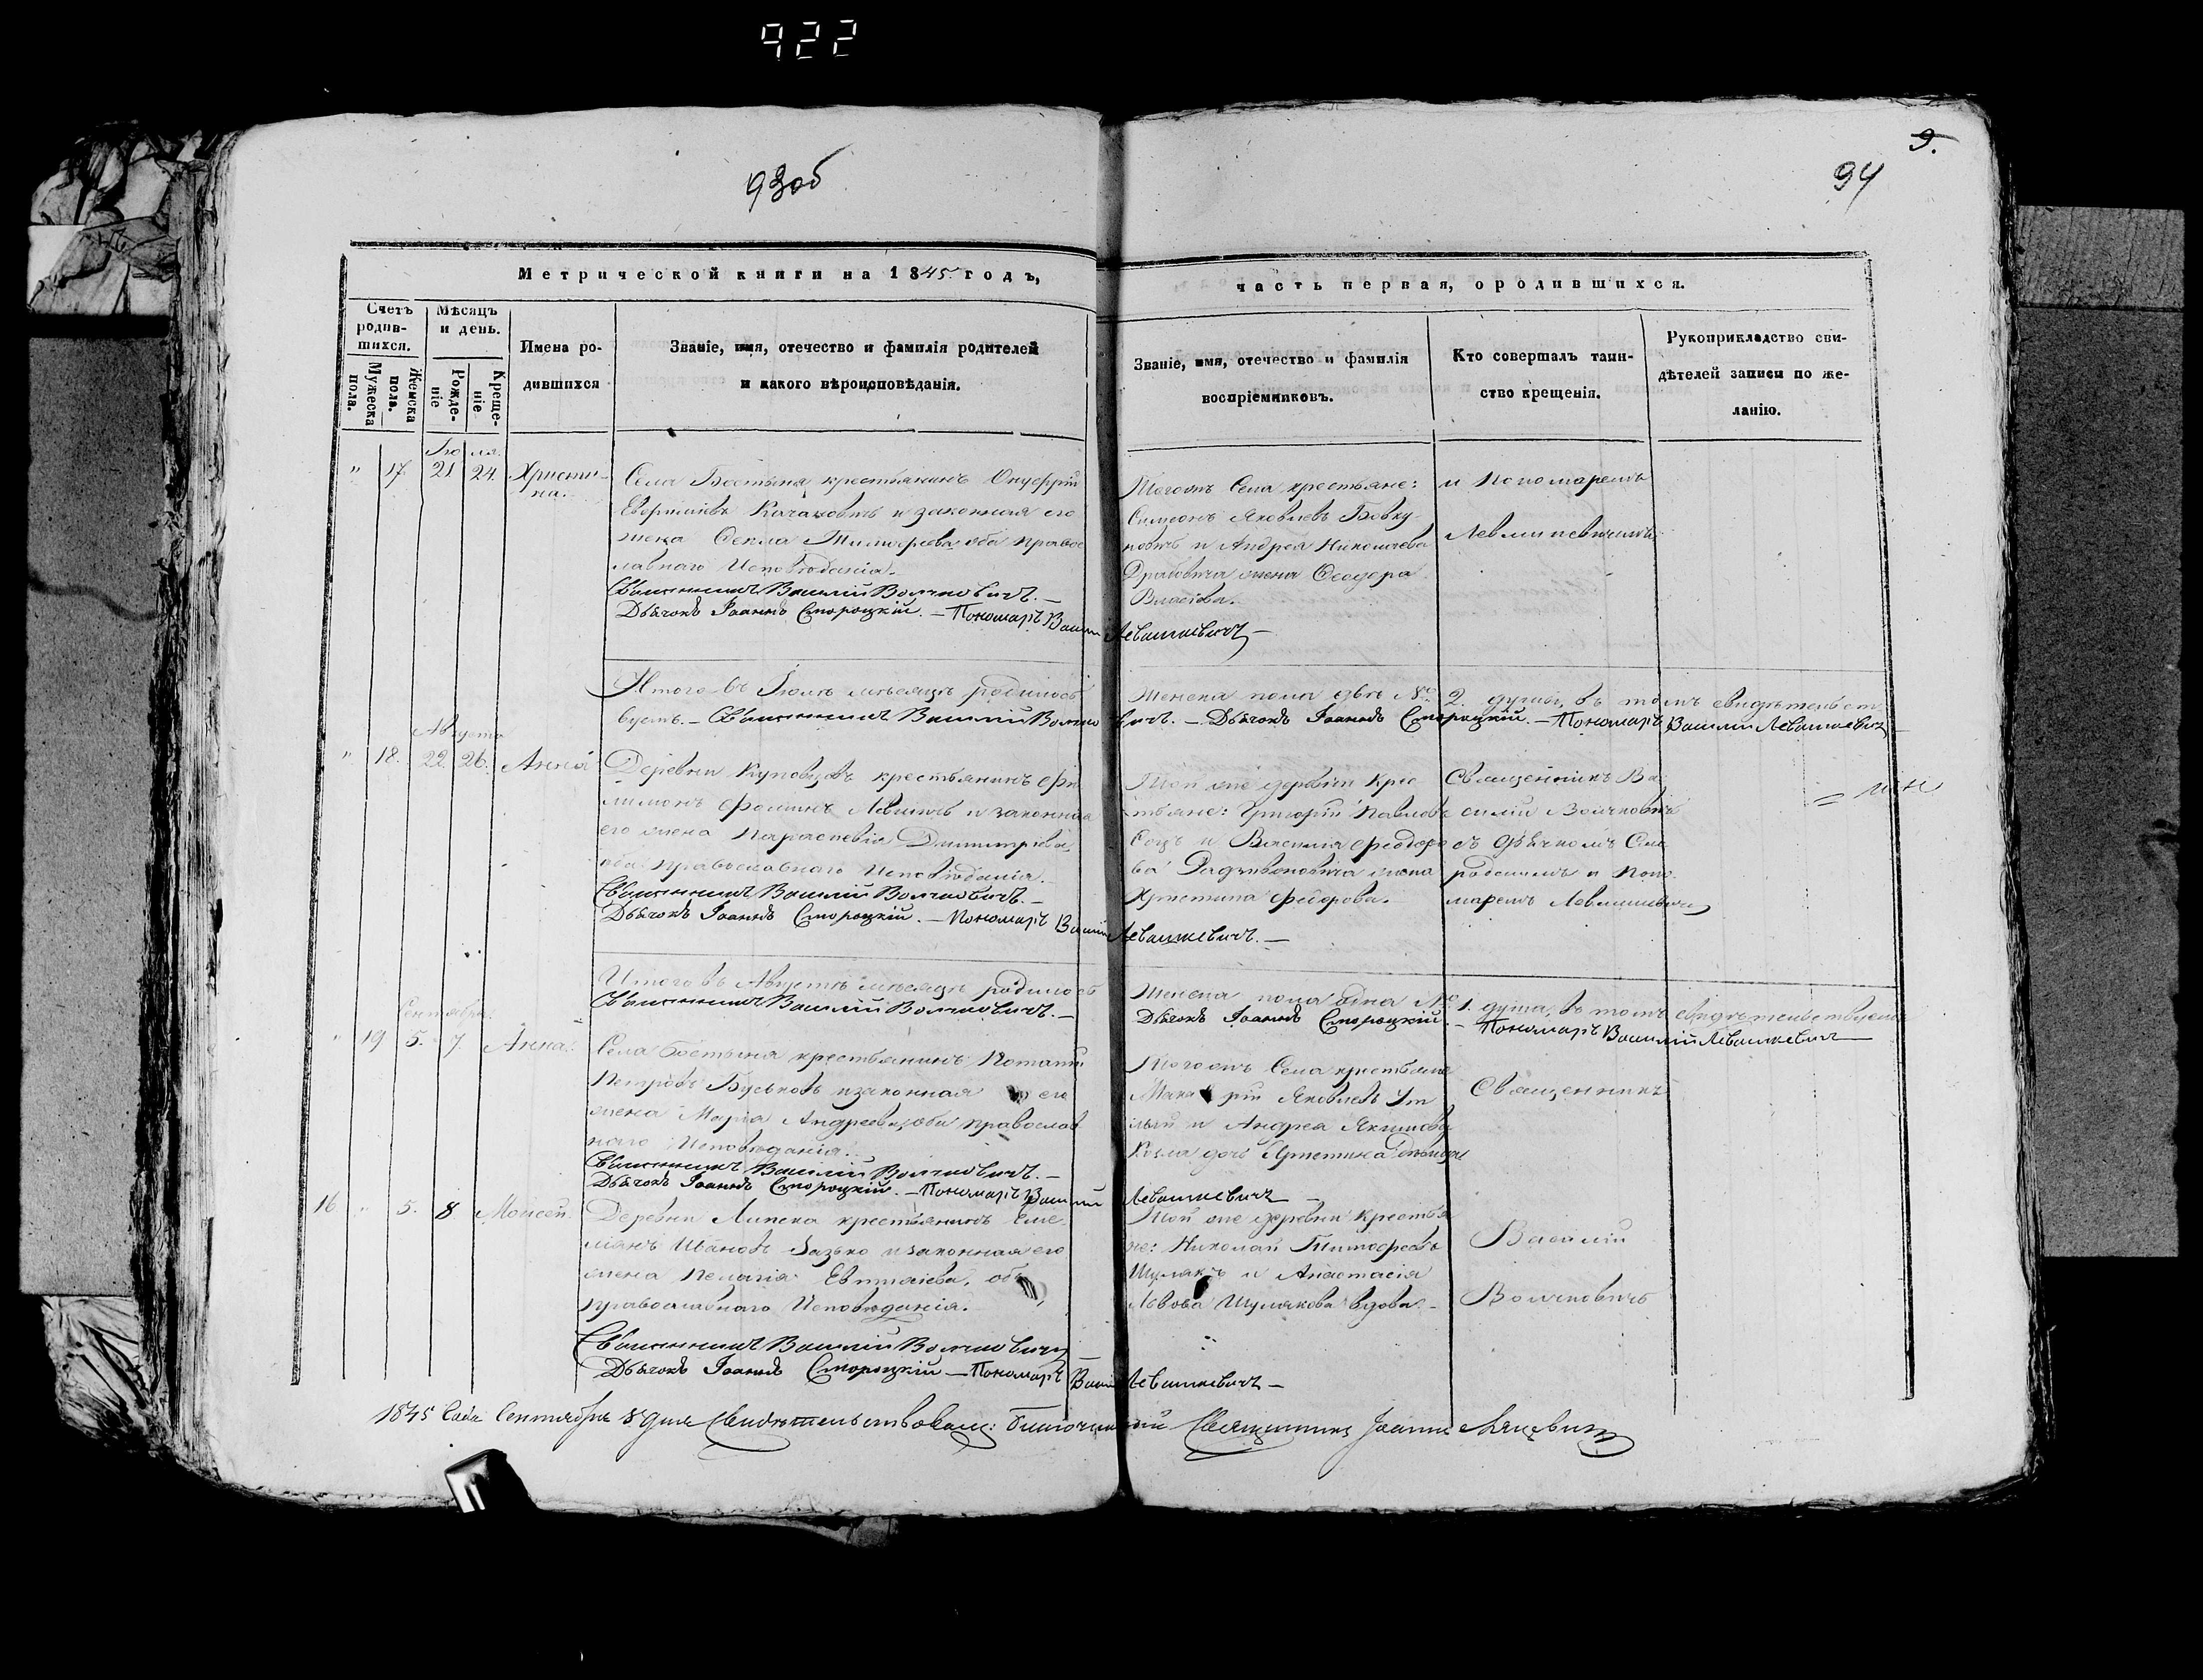 922
93об
9.
94
Метрической книги на 1845 годъ,
часть первая, ородившихся.
Счетъ родив-
шихся.
Мужеска пола.
Женска пола.
Мѣсяцъ и день.
Рожде-
ніе
Креще-
ніе.
Имена ро-
дившихся
Званіе, имя, отечество и фамилія родителей
и какого вѣроисповѣданія.
Званіе, имя, отечество и фамилія
воспріемниковъ.
Кто совершалъ таин-
ство крещенія.
Рукоприкладство сви-
дѣтелей записи по же-
ланію.
Іюля.
" 17. 21 24. Христи-
на.
Села Бостыня крестьянинъ Онуфрій
и законная его
жена Фекла Тимофеева, оба право
славнаго Исповѣданія.
Священникъ Василій Волчковичъ. —
Дьячокъ Іоаннъ Смороцкій. — Пономарь Василій Левашкевичъ —
Тогожъ Села крестьяне:
Симеонъ Яковлевъ Бовку
новичъ и Андрея Николаева
жена Феодора
Власіова.
и Пономаремъ
Левашкевичемъ
Итого въ Іюлѣ мѣсяцѣ родилось женска пола двѣ № 2. души, въ томъ свидѣтельст
вуемъ. — Священникъ Василій Волчковичъ. — Дьячокъ Іоаннъ Смороцкій. — Пономарь Василій Левашкевичъ
Августа
" 18. 22. 26. Анна
Деревни крестьянинъ Фи
лимонъ Фоминъ и законная
его жена Параскевія Димитріева
оба православнаго Исповѣданія.
Священникъ Василій Волчковичъ. —
Дьячокъ Іоаннъ Смороцкій. — Пономарь Василій Левашкевичъ. —
Той же деревни Крес
тьяне: Григорій Павловъ
и Василія Феодоро
ва жена
Христина Федорова.
Священникъ Ва
силій Волчковичъ
съ дьячкомъ Смо
роцкимъ и Поно
маремъ Левашкевичемъ
Итого въ Августѣ мѣсяцѣ родилось женска пола одна № 1. душа, въ томъ свидѣтельствуемъ
Священникъ Василій Волчковичъ. — Дьячокъ Іоаннъ Смороцкій. — Пономарь Василій Левашкевичъ
Сентября.
" 19 5. 7. Анна.
Села Бостыня крестьянинъ Потапій
Петровъ и законная его
жена Марія Андреева, оба православ
наго Исповѣданія.
Священникъ Василій Волчковичъ. —
Дьячокъ Іоаннъ Смороцкій. — Пономарь Василій Левашкевичъ —
Тогожъ Села крестьяне
Макарій Яковлевъ
и Андрея Якимова
Козла дочь Христина
Священникъ
16. " 5. 8 Моисей.
Деревни Липска крестьянинъ Еме
ліянъ Ивановъ и законная его
жена Пелагія оба
православнаго Исповѣданія.
Священникъ Василій Волчковичъ —
Дьячокъ Іоаннъ Смороцкій — Пономарь Василій Левашкевичъ —
Той же деревни Крестья
не: Николай Тимофеевъ
Шулякъ и Анастасія
Львова Шулякова вдова. —
Василій
Волчковичъ
1845 Года Сентября 8 дня Свидѣтельствовалъ: Благочинный Священникъ Іоаннъ